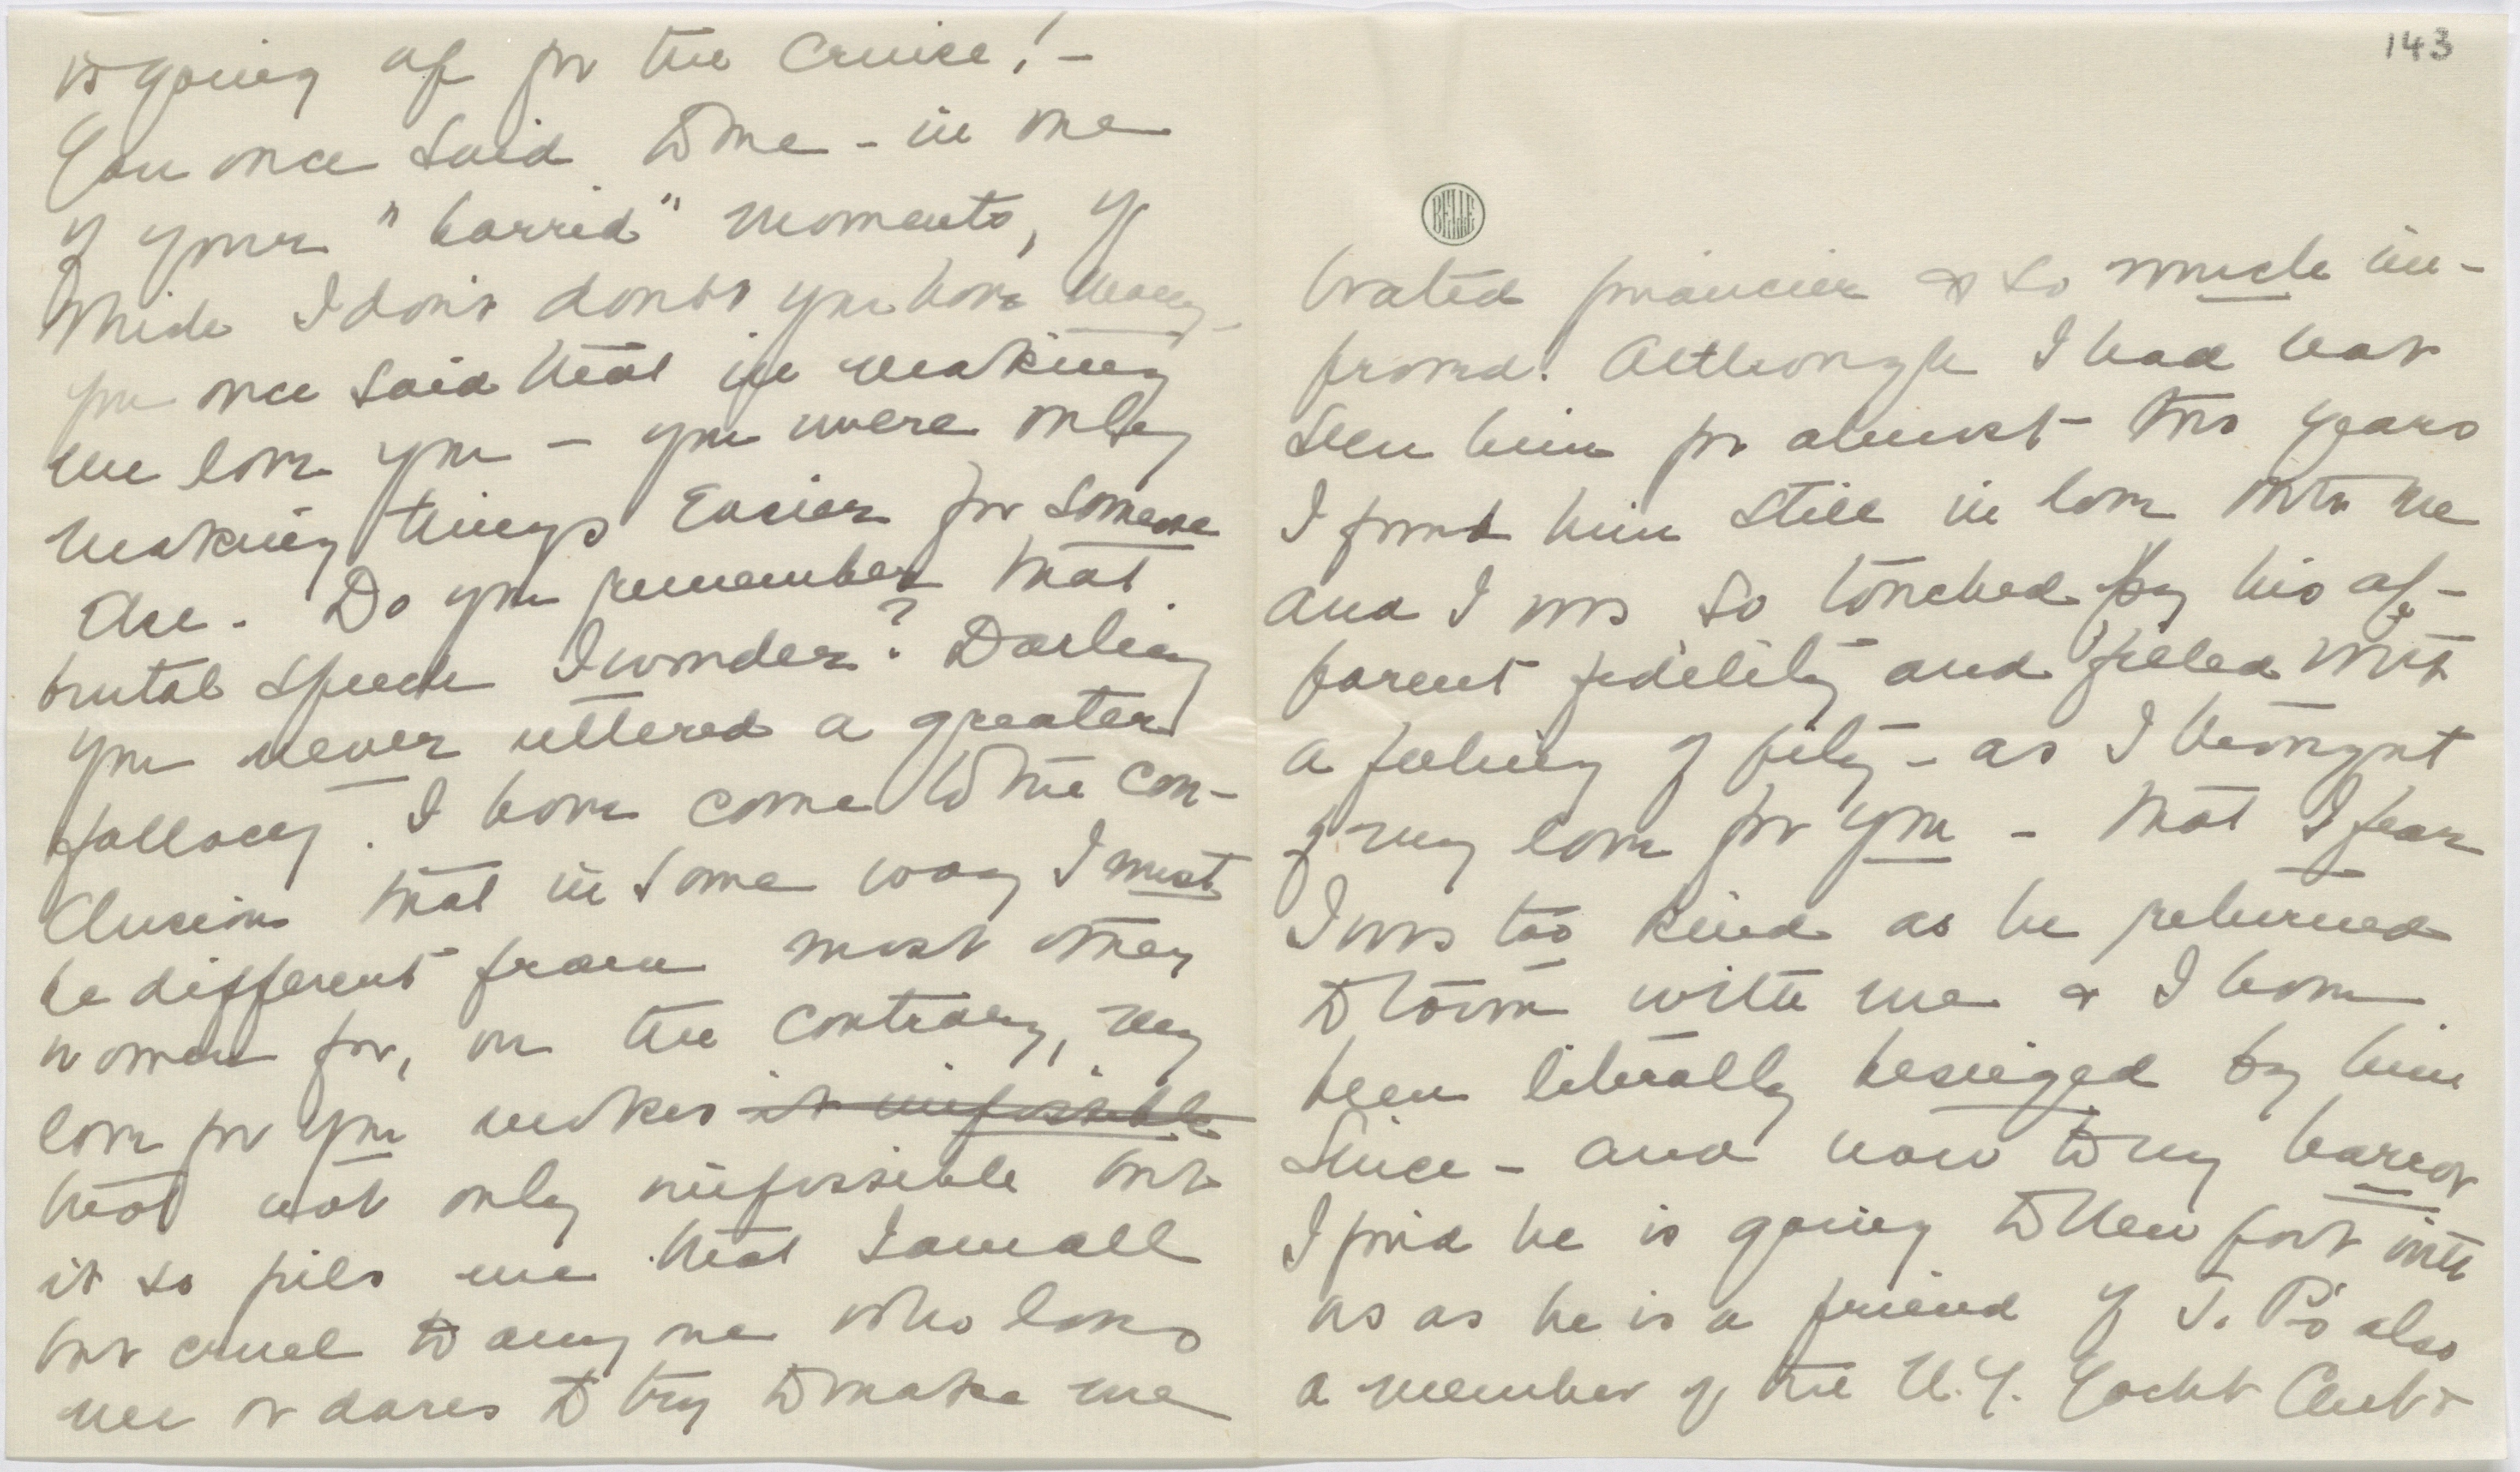 is going off for the Cruise! -
You once said to me - in one
of your "horrid" moments, of
which I don't doubt you have many -
you once said that in making
me love you - you were only
making things easier for someone
else. Do you remember that
brutal speech I wonder? Darling
you never uttered a greater
fallacy. I have come to the con-
clusion that in some way I must
be different from most other
women for, on the contrary, my
love for you makes it impossible
that not only impossible but
it so fills me that I am all
but cruel to any one who loves
me or dares to try to make me
143
BELLE
brated financier & so much im-
proved! Although I had not
seen him for almost two years
I found him still in love with me
and I was so touched by his ap-
parent fidelity and filled with
a feeling of pity - as I thought
of my love for you - that I fear
I was too kind as he returned
to town with me & I have
been literally besieged by him
since - and now to my horror
I find he is going to Newport with
us as he is a friend of J. P's also
a member of the N.Y. Yacht Club &